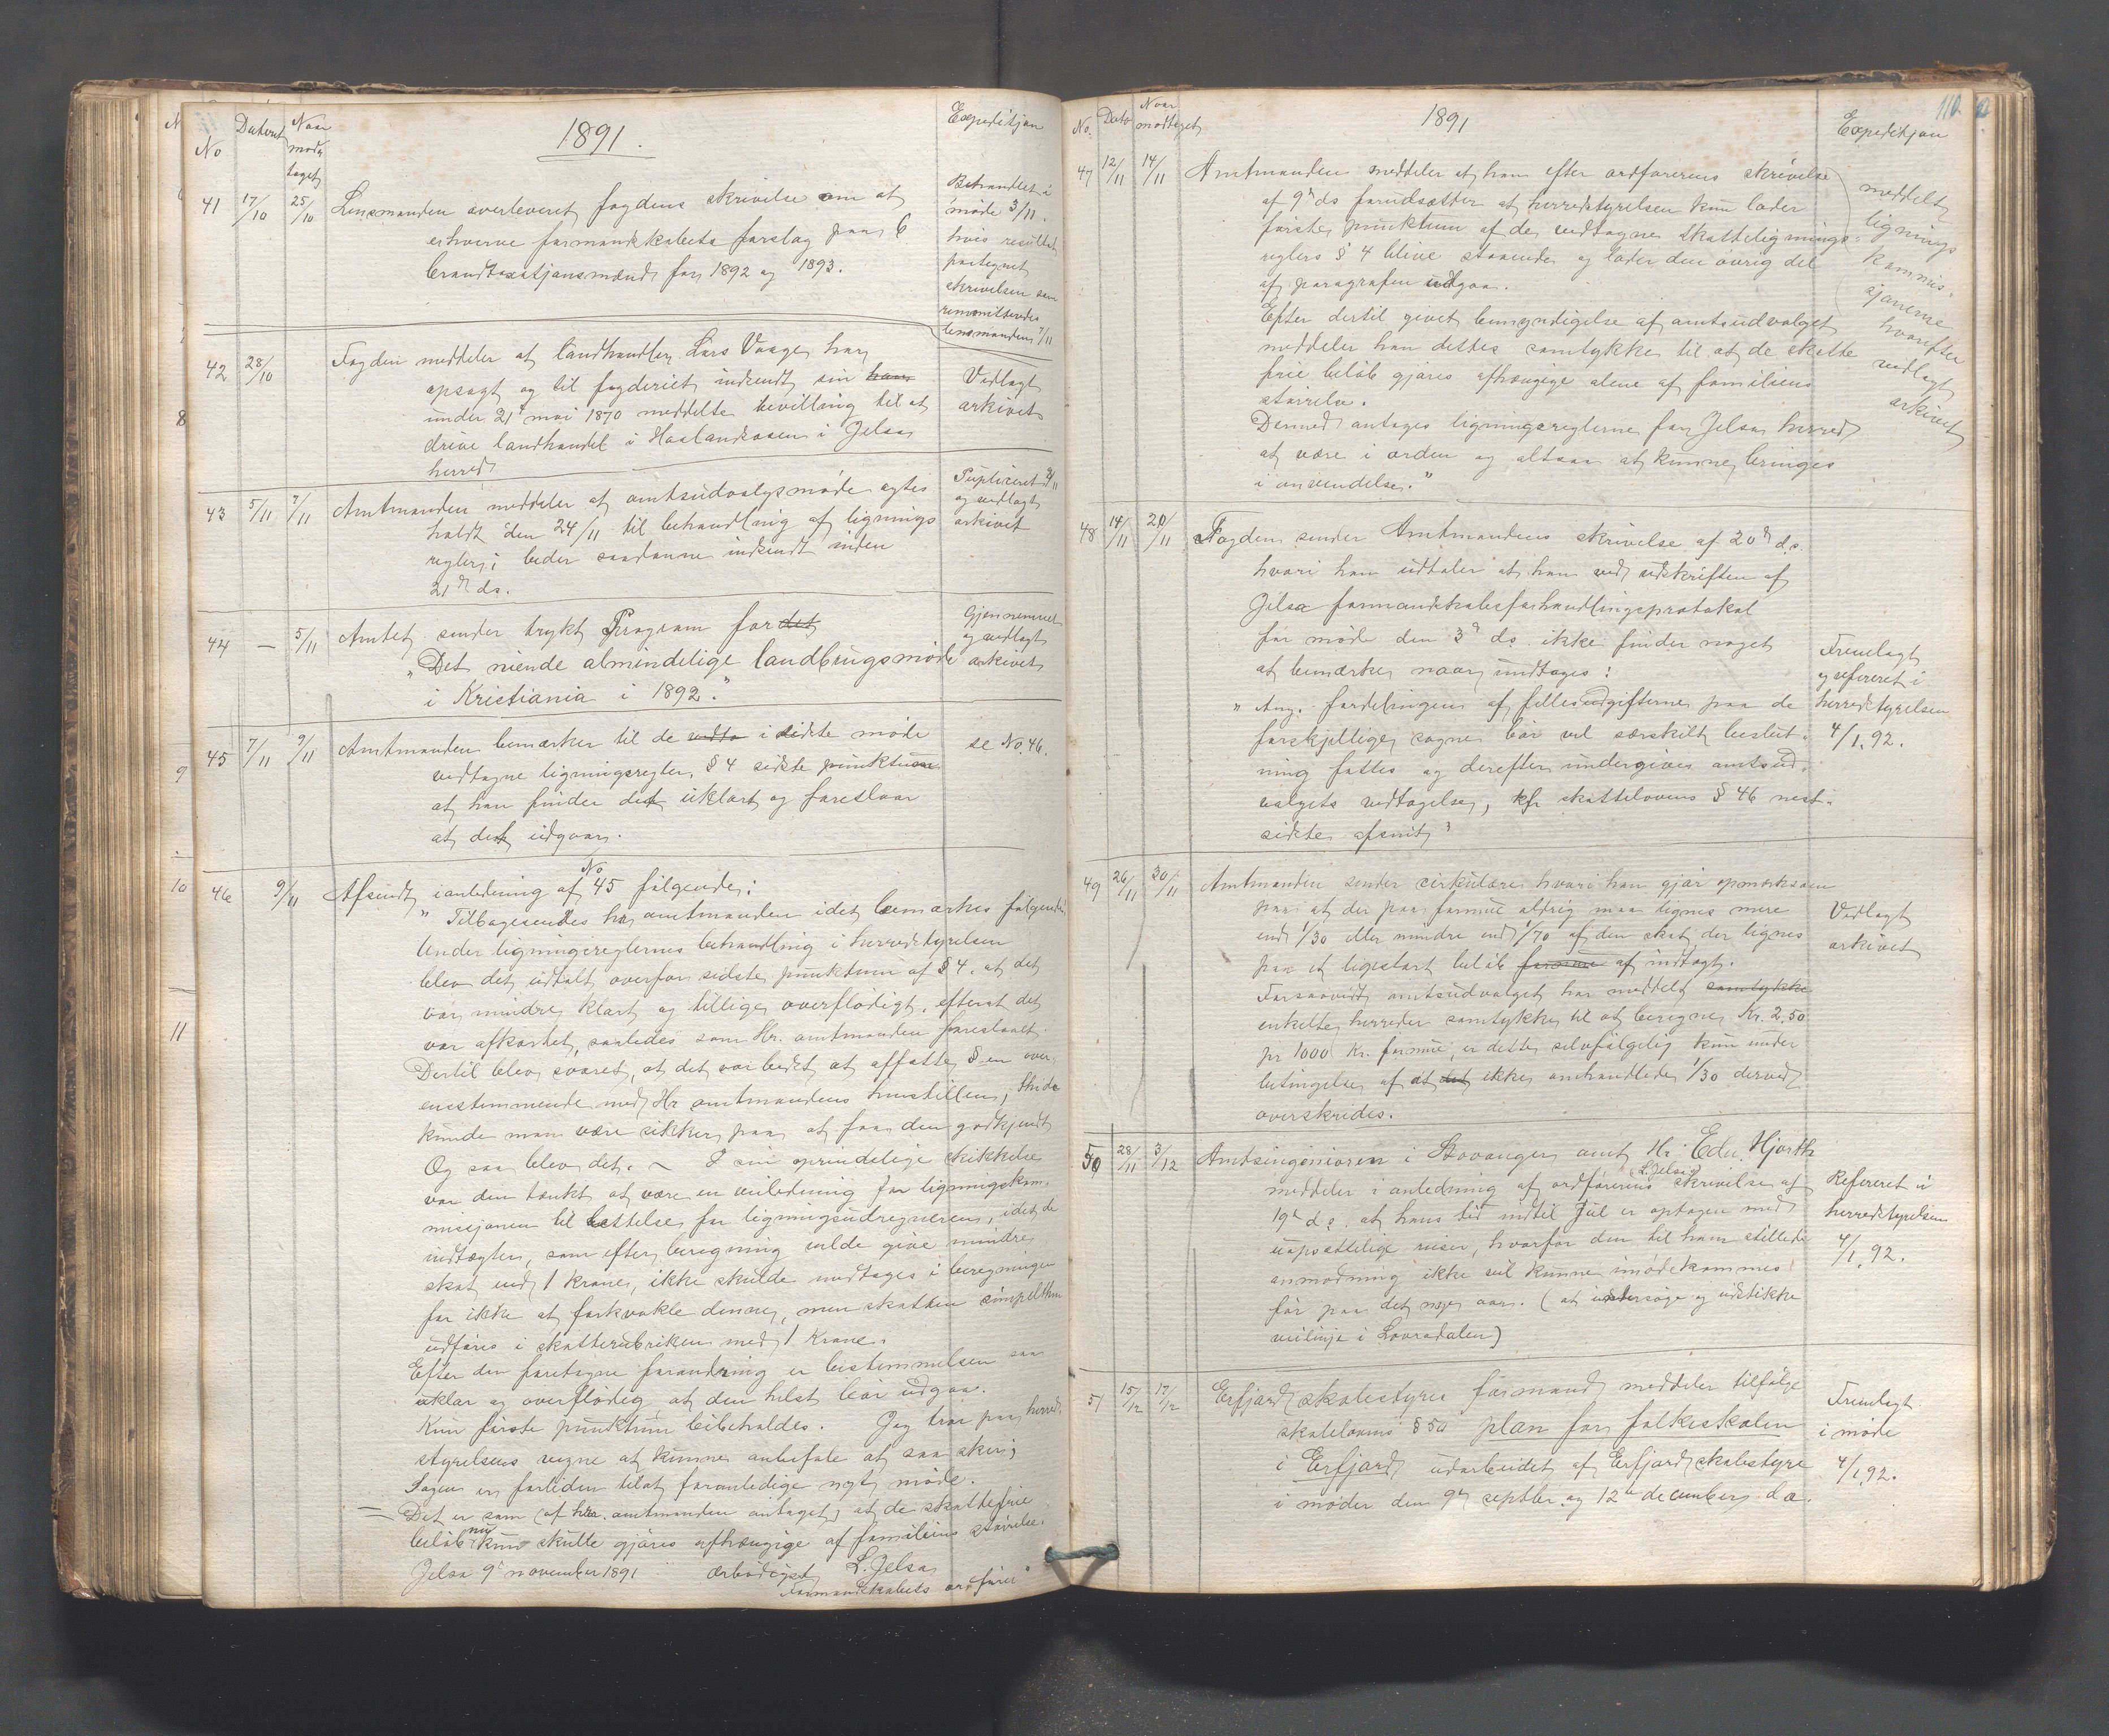 No
Dateret
Naar
modtaget
1891.
Expeditjon
41 17/10 25/10 Lensmanden overleveret fogdens skrivelse om at
erhverve formandskabets forslag paa 6
brandtaxatjonsmænd for 1892 og 1893.
Behandlet i
møde 3/11.
hvis resultat
paategnet
skrivelsen som
remmitteredes
lensmanden 7/11
42 28/10 Fogden meddeler at landhandler Lars Vaage har
opsagt og til fogderiet indsendt sin ham
under 21de mai 1870 meddelte bevilling til at
drive landhandel i Haalandsosen i Jelsa
herred
Vedlagt
arkivet
43 5/11 7/11 Amtmanden meddeler at amtsudvalgsmøde agtes
holdt den 24/11 til behandling af lignings
regler; beder saadanne indsendt inden
21de ds.
Pupliceret
og vedlagt
arkivet
44 — 5/11 Amtet sender trykt Program for det
"Det niende almindelige landbrugsmøde
i Kristiania i 1892."
Gjennemseet
og vedlagt
arkivet
45 7/11 9/11 Amtmanden bemærker til de vedta i sidste møde
vedtagne ligningsregler, § 4 sidste punktum
at han finder det uklart og foreslaar
at det udgaar.
se No. 46.
46 9/11 Afsendt i anledning af No 45 følgende:
"Tilbagesendes hr. amtmanden idet bemærkes følgende:
Under ligningsreglernes behandling i herredstyrelsen
blev det udtalt overfor sidste punktum af § 4. at det
var mindre klart og tillige overflødigt, efterat det
var afkortet, saaledes som Hr. amtmanden foreslaaet.
Dertil blev svaret, at det var bedst at affatte § en over-
ensstemmende med Hr amtmandens henstillen,
kunde man være sikker paa at faa den godkjendt
Og saa blev det. — I sin oprindelige skikkelse
var den tænkt at være en veiledning for ligningskom-
missjonen til lettelse for ligningsudregneren, idet de
indtægter, som efter beregning vilde give mindre
skat end 1 krone, ikke skulde medtages i beregningen
for ikke at forkvakle denne, men skatten simpelthen
udføres i skatterubriken med 1 Krone.
Efter den foretagne forandring er bestemmelsen saa
uklar og overflødig at den helst bør udgaa.
Kun første punktum beibeholdes. Jeg tror paa herreds-
styrelsens vegne at kunne anbefale at saa sker;
Sagen er forliden til at foranledige nyt møde.
— Det er som (af hr. amtmanden antaget) at de skattefrie
beløb nu kun skulle gjøres afhængige af familiens størrelse.
Jelsa 9de november 1891 ærbødigst L. Jelsa
Formandskabets ordfører"
No.
Dato
Naar
modtaget
1891
110.
Expeditjon
47 12/11 14/11 Amtmanden meddeler at han efter ordførerens skrivelse
af 9de ds forudsætter at herredstyrelsen kun lader
første punktum af de vedtagne skatteligнings-
reglers § 4 blive staaende og lader den øvrig del
af paragrafen udgaa.
Efter dertil givet bemyndigelse af amtsudvalget
meddeler han dettes samtykke til at de skatte
frie beløb gjøres afhængige alene af familiens
størrelse.
Dermed antages ligningsreglerne for Jelsa herred
at være i orden og altsaa at kunne bringes
i anvendelse."
meddelt
lignings
kommis-
sjonerne
hvorefter
vedlagt
arkivet
48 14/11 20/11 Fogden sender Amtmandens skrivelse af 20de d.s.
hvori han udtaler at han ved udskriften af
Jelsa formandskabsforhandlingsprotokol
for møde den 3de ds. ikke finder noget
at bemærke naar undtages:
"Ang. fordelingen af fellesudgifterne paa de
forskjellige sogne bør vel særskilt beslut-
ning fattes og derefter undergives amtsud-
valgets vedtagelse, kfr skattelovens § 46 nest-
sidste afsnit"
Fremlagt
og refereret i
herredstyrelsen
4/1.92.
49 26/11 30/11 Amtmanden sender cirkulære hvori han gjør opmerksom
paa at der paa formue aldrig maa lignes mere
end 1/30 eller mindre end 1/70 af den skat, der lignes
paa et ligestort beløb formue af indtægt.
Forsaavidt amtsudvalget har meddelt samtykke
enkelte herreder samtykke til at beregne Kr. 2,50
pr 1000 Kr. formue, er dette selvfølgelig kun under
betingelse af at det ikke omhandlede 1/30 derved
overskrides.
Vedlagt
arkivet
50 28/11 3/12 Amtsingeniøren i Stavanger amt Hr. Edv. Hjorth
meddeler i anledning af ordførerens (L. Jelsa) skrivelse af
19de ds. at hans tid indtil Jul er optagen med
uopsættelige reiser, hvorfor den til ham stillede
anmodning ikke vil kunne imødekommes
før paa det nye aar. (at undersøge og udstikke
veilinje i Lovradalen)
Refereret i
herredstyrelsen
4/1.92.
51 15/12 17/12 Erfjord skolestyres formand meddeler tilfølge
skolelovens § 50 plan for folkeskolen
i Erfjord udarbeidet af Erfjord skolestyre
i møder den 9de septbr. og 12te december d.a.
Fremlagt
i møde
4/1.92.
9
8
10
11